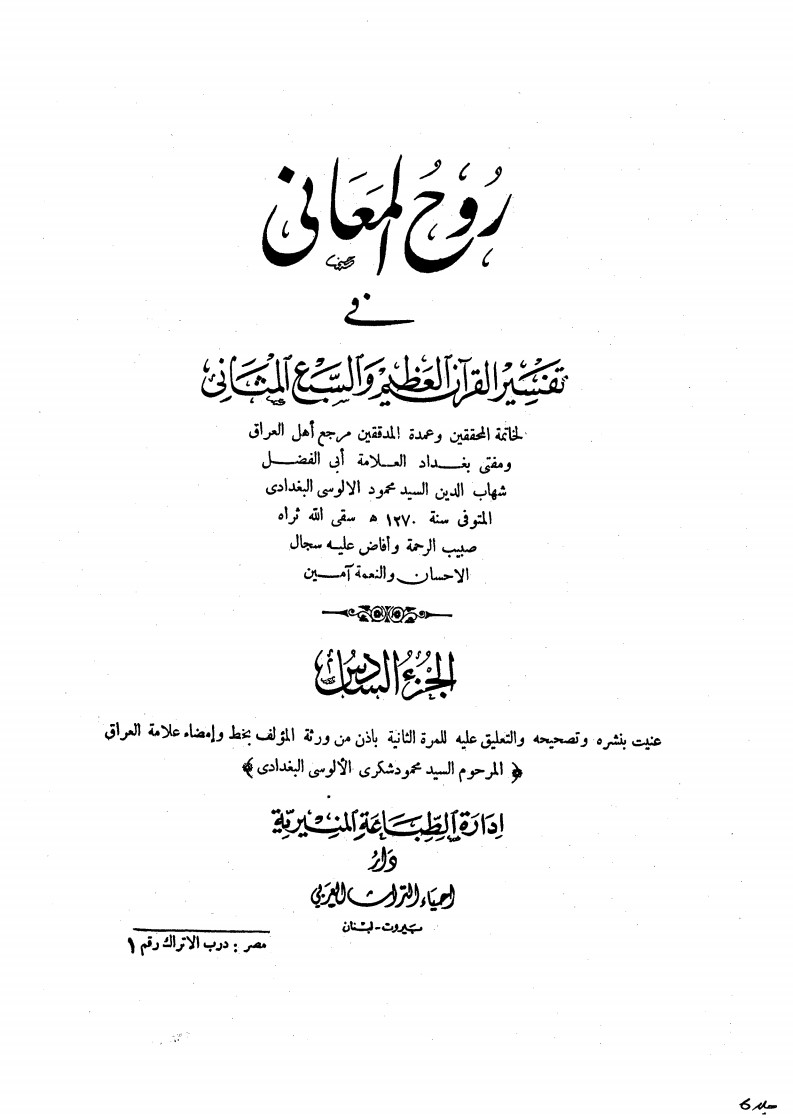 رُوحُ المَعَانى
فى
تفسير القرآن العظيم والسبع المثانى
لخاتمة المحققين وعمدة المدققين مرجع أهل العراق
ومفتى بغـــداد العـلامة أبى الفضـــل
شهاب الدين السيد محمود الالوسى البغدادى
المتوفى سنة ١٢٧٠ ﻫ سقى الله ثراه
صبيب الرحمة وأفاض عليـه سجال
الاحسان والنعمة آمـــين
الجزء السادس
عنيت بنشره وتصحيحه والتعليق عليه للمرة الثانية باذن من ورثة المؤلف بخط وإمضاء علامة العراق
﴿ المرحوم السيد محمود شكرى الألوسى البغدادى ﴾
إدارة الطباعة المنيرية
دار
احياء التراث العربي
بيروت - لبنان
مصر : درب الاتراك رقم ١
جلد 6